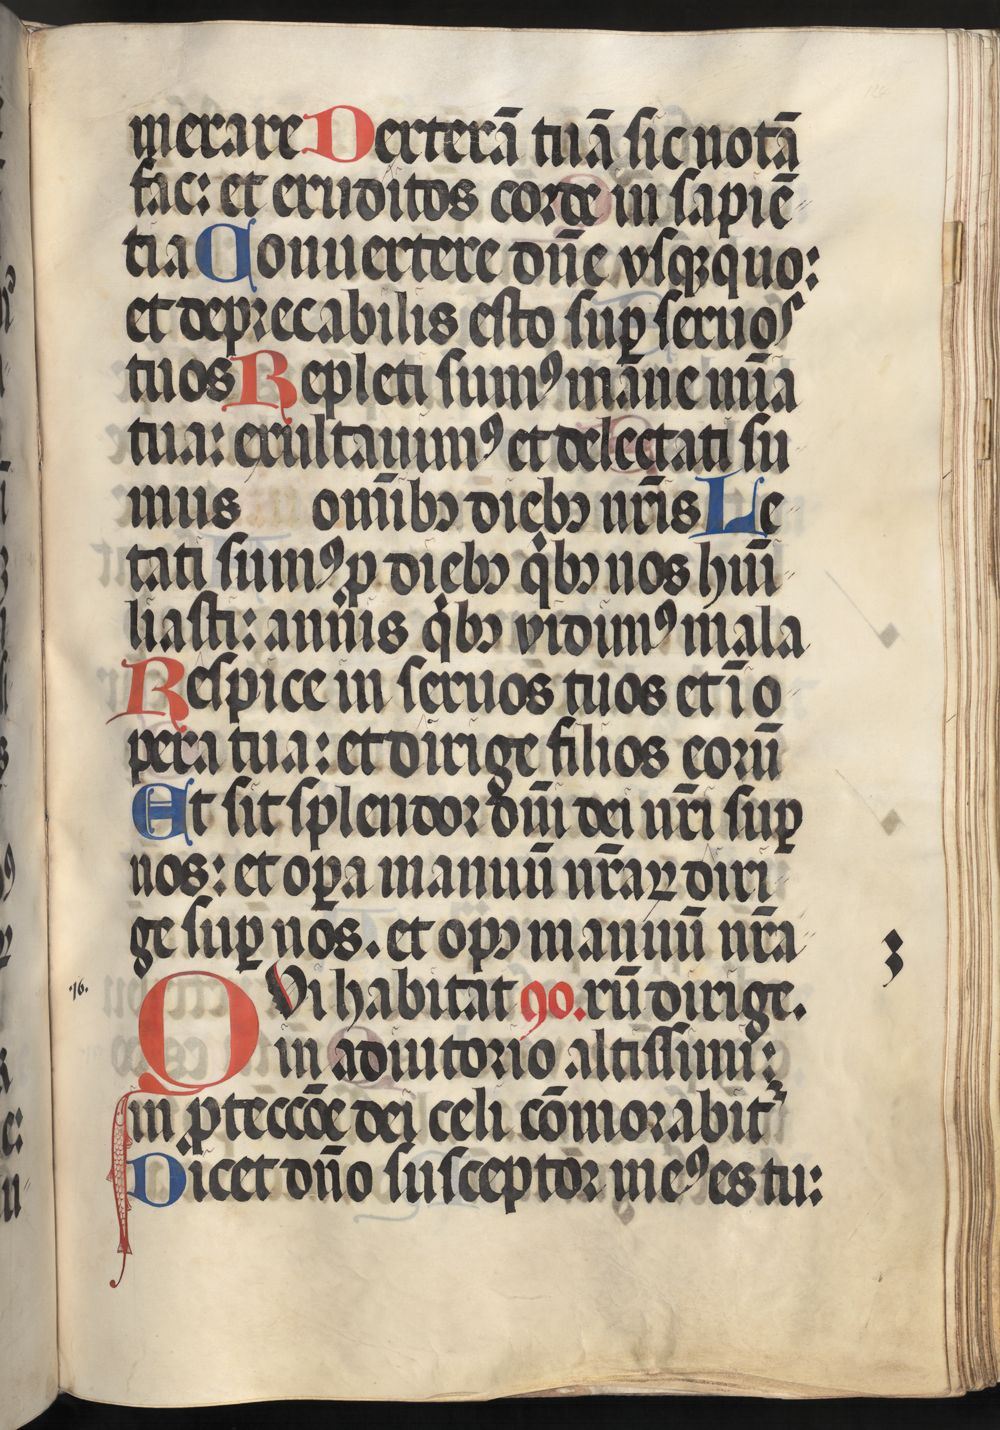 merare Dexterā tuā sic notā
fac: et eruditos corde in sapiē
tia Conuertere dn̄e vsqꝫ quo:
et deprecabilis esto suꝑ seruos
tuos Repleti sumꝰ mane mīa
tua: exultauimꝰ et delectati su
mus om̄ibꝫ diebꝫ nr̄is Le
tati sumꝰ ꝓ diebꝫ qͥbꝫ nos humi
liasti: annis qͥbꝫ vidimꝰ mala
Respice in seruos tuos et ī o
pera tua: et dirige filios eorū
Et sit splendor dn̄i dei nr̄i suꝑ
nos: et oꝑa manuū nr̄aꝝ diri
ge suꝑ nos. et opꝰ manuū nr̄a
76.
QVi habitat 90. rū dirige.
in adiutorio altissimi:
in ꝓteccōe dei celi cōmorabit᷑
Dicet dn̄o susceptor meꝰ es tu:
3